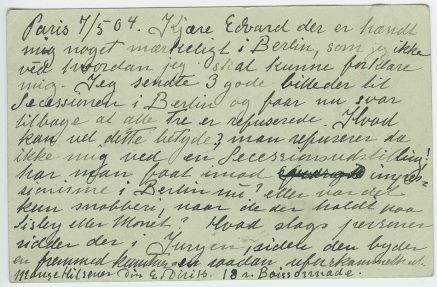 Paris 7/5 04. Kjære Edvard der er hændt
mig noget mærkeligt i Berlin, som jeg ikke
ved hvordan jeg skal kunne forklare
mig. Jeg sendte 3 gode billeder til
Secessionen i Berlin og faar nu svar
tilbage at alle tre er refuserede. Hvad
kan vel dette betyde, man refuserer da
ikke mig ved en Secessionsudstilling!
har man faat imod impres-
sionisme i Berlin nu? eller var det
kun snobberi, naar de der holdt paa
Sisley eller Monet? Hvad slags personer
sidder der i Juryen, siden den byder
en fremmed kunstner en saadan
Mange Hilsener Din E. Diriks. 18 r. Boissonnade.